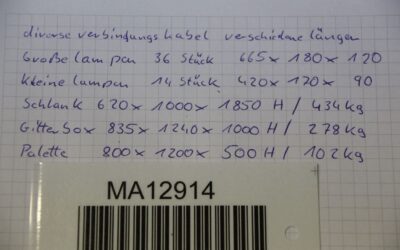 diverse verbindungskabel verschiedene längen
Große lampen 36 Stück 665 x 180 x 120
kleine lampen 14 Stück 420 x 170 x 90
Schlank 620 x 1000 x 1850 H / 434 kg
Gitterbox 835 x 1240 x 1000 H / 278 kg
Palette 800 x 1200 x 500 H / 102 kg
MA12914